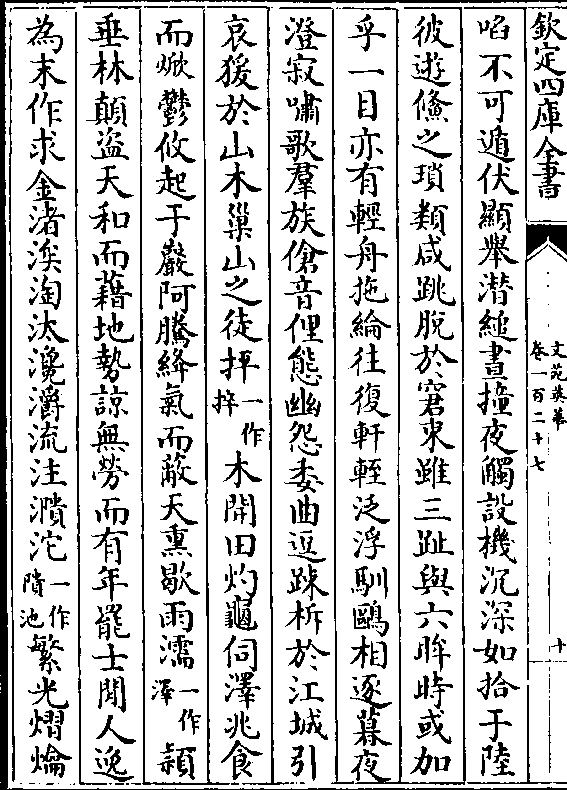 欽定四庫全書
文苑英華
卷一百二十七
十
啗不可遁伏顯舉潜縋晝撞夜觸設機沉深如拾于陸
彼遊鯈之瑣類咸跳脫於窘束雖三趾與六眸時或加
乎一目亦有輕舟拖綸往復軒輊泛浮馴鷗相逐暮夜
澄寂嘯歌羣族傖音俚態幽怨委曲逗踈柝於江城引
哀猨於山木巢山之徒抨一作捽木開田灼龜伺澤兆食
而焮鬱攸起于巖阿騰絳氣而蔽天熏歇雨濡一作澤頴
垂林顛盜天和而藉地勢諒無勞而有年罷士閒人逸
為末作求金渚涘淘汰瀺灂流注濆沱一作隫池繁光熠爚